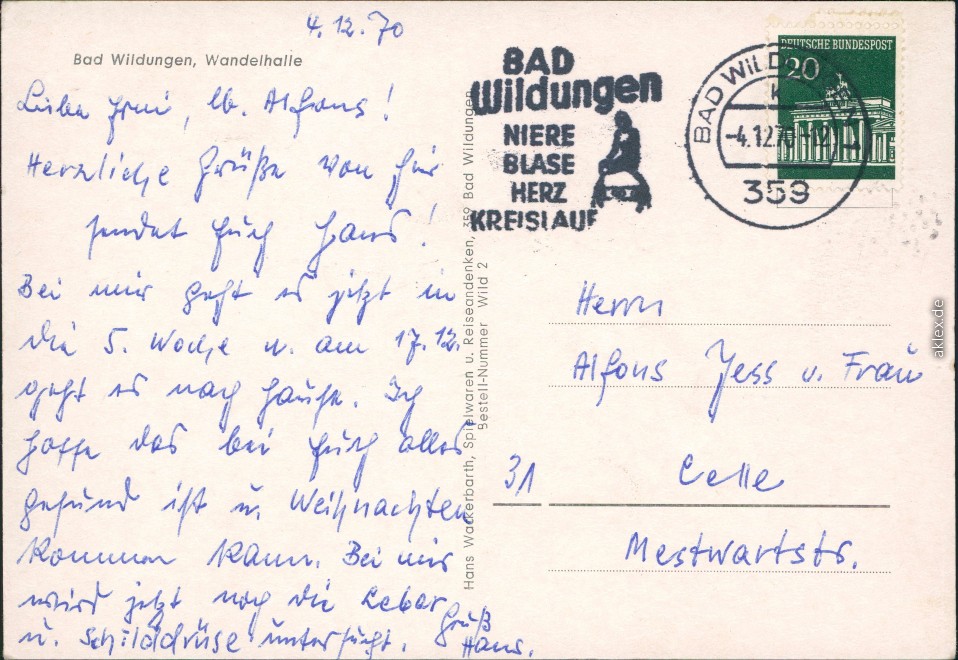 4.12.70
Bad Wildungen, Wandelhalle
Liebe lb. Alfons!
Herzliche Grüße von hier
sendet Euch Hans!
Bei mir geht es jetzt in
die 5. Woche u. am 17.12.
geht es nach Hause. Ich
hoffe das bei Euch alles
gesund ist u. Weihnachten
kommen kann. Bei mir
wird jetzt noch die Leber
u. Schilddrüse untersucht.
Gruß
Hans.
Hans Wackerbarth, Spielwaren u. Reiseandenken, 359 Bad Wildungen
Bestell-Nummer Wild 2
BAD
Wildungen
NIERE
BLASE
HERZ
KREISLAUF
BAD WILDUNGEN
-4.12.70-12
359
DEUTSCHE BUNDESPOST
20
Herrn
Alfons Jess u. Frau
31 Celle
Mestwartstr.
aklex.de